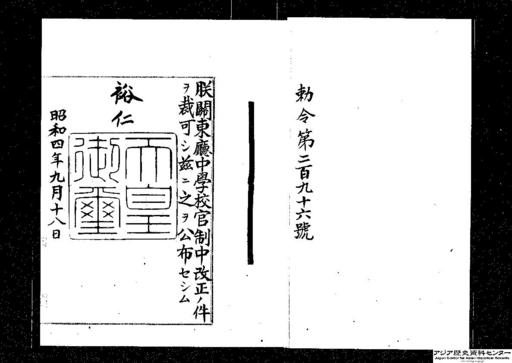 勅令第二百九十六號
朕關東廳中學校官制中改正ノ件
ヲ裁可シ茲ニ之ヲ公布セシム
裕仁
天皇
御璽
昭和四年九月十八日
アジア歴史資料センター
Japan Center for Asian Historical Records